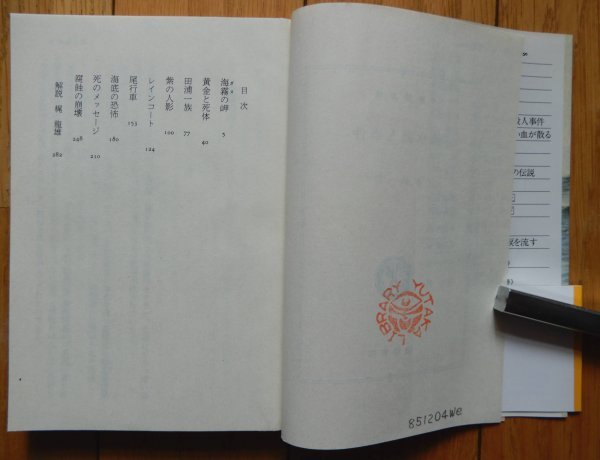 目次
海霧の岬 5
ガス
黄金と死体 40
田浦一族 77
紫の人影 100
レインコート 124
尾行車 153
海底の恐怖 180
死のメッセージ 210
腐蝕の崩壊 248
解説 梶龍雄 282
LIBRARY YUTAKA
851204We
人事件
血が散る
の伝説
を流す